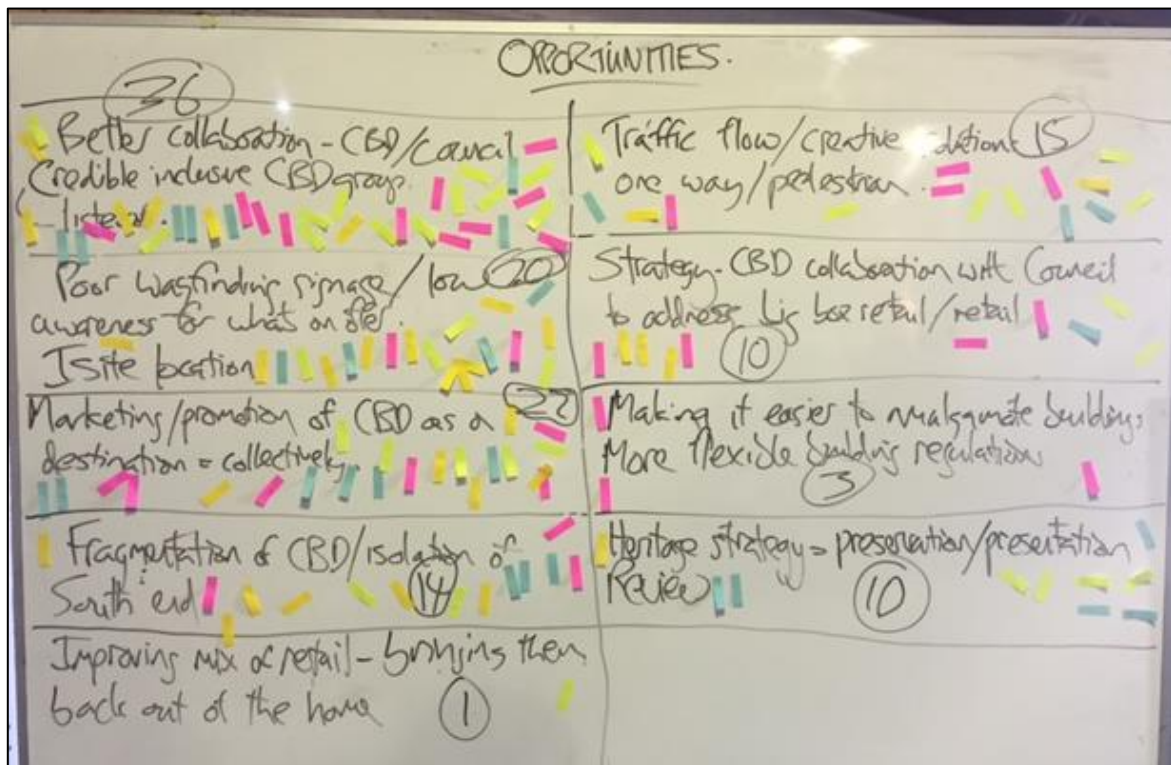 OPPORTUNITIES.
36
Better collaboration - CBD/Council
Credible inclusive CBD group.
- listens.
Poor wayfinding signage/low 20
awareness for what on offer.
Isite location
Marketing/promotion of CBD as a 22
destination = collectively.
Fragmentation of CBD/isolation of
South end 14
Improving mix of retail - bringing them
back out of the home 1
Traffic flow/creative solutions 15
one way/pedestrian.
Strategy - CBD collaboration with Council
to address big box retail/retail
10
Making it easier to amalgamate buildings
More flexible building regulations
3
Heritage strategy = preservation/presentation
Review 10